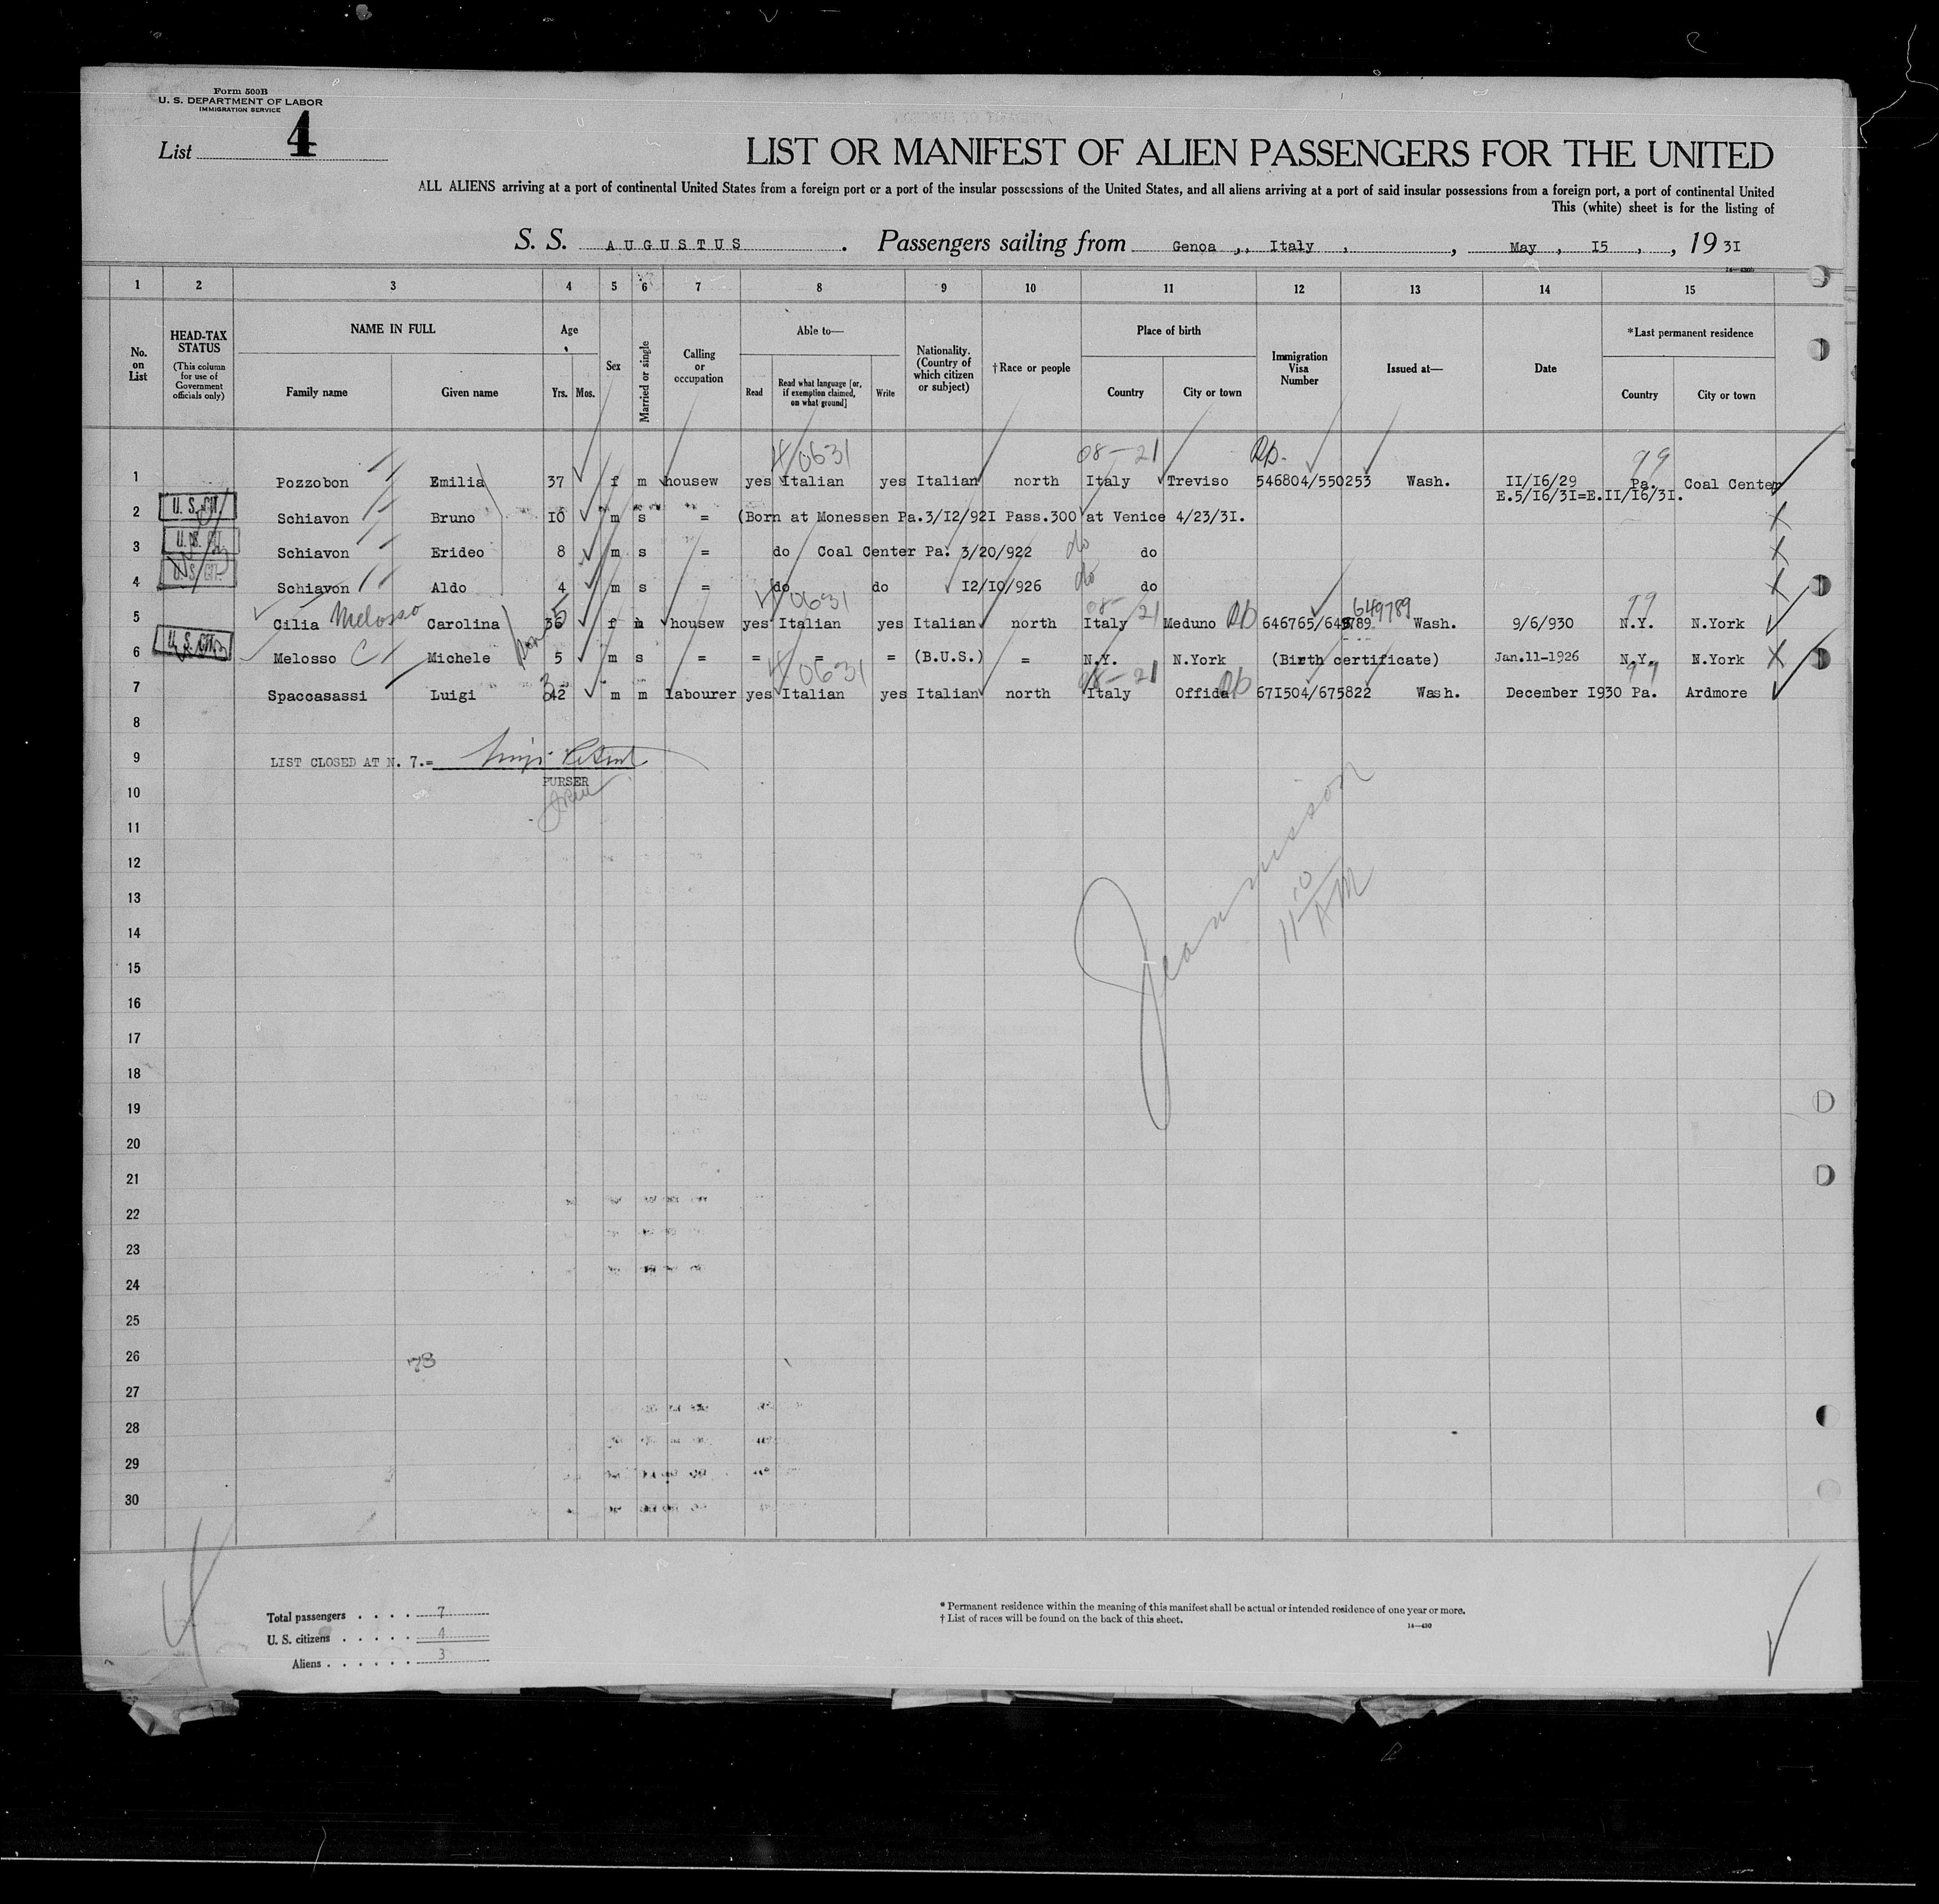 Form 500B
U. S. DEPARTMENT OF LABOR
IMMIGRATION SERVICE
List 4
LIST OR MANIFEST OF ALIEN PASSENGERS FOR THE UNITED
ALL ALIENS arriving at a port of continental United States from a foreign port or a port of the insular possessions of the United States, and all aliens arriving at a port of said insular possessions from a foreign port, a port of continental United
This (white) sheet is for the listing of
S. S. AUGUSTUS. Passengers sailing from Genoa,, Italy, , May, I5, , 19 3I
14—430b
1 2 3 4 5 6 7 8 9 10 11 12 13 14 15
No. on List
HEAD-TAX STATUS
(This column for use of Government officials only)
NAME IN FULL
Family name Given name
Age
Yrs. Mos.
Sex
Married or single
Calling or occupation
Able to—
Read
Read what language [or, if exemption claimed, on what ground]
Write
Nationality. (Country of which citizen or subject)
†Race or people
Place of birth
Country City or town
Immigration Visa Number
Issued at—
Date
*Last permanent residence
Country City or town
0631 08-21 99
1 Pozzobon Emilia 37 f m housew yes Italian yes Italian north Italy Treviso 546804/550253 Wash. II/I6/29 Pa. Coal Center
E.5/I6/3I=E.II/I6/3I.
2 U. S. CIT. Schiavon Bruno I0 m s = (Born at Monessen Pa.3/I2/92I Pass.300 at Venice 4/23/3I.
3 U. S. CIT. Schiavon Erideo 8 m s = do Coal Center Pa. 3/20/922 do do
4 U. S. CIT. Schiavon Aldo 4 m s = do do I2/I0/926 do do
0631 08- 21 649789 99
5 Cilia Melosso Carolina 36 5 f m housew yes Italian yes Italian north Italy Meduno 646765/649789 Wash. 9/6/930 N.Y. N.York
6 U. S. CIT. Melosso C Michele 5 m s = = = = (B.U.S.) = N.Y. N.York (Birth certificate) Jan.11-1926 N.Y. N.York
0631 08-21 99
7 Spaccasassi Luigi 42 m m labourer yes Italian yes Italian north Italy Offida 67I504/675822 Wash. December I930 Pa. Ardmore
8
9 LIST CLOSED AT N. 7.=
PURSER
10
11
12
13
14
15
16
17
18
19
20
21
22
23
24
25
26
27
28
29
30
Jeannisson
11 10 AM
Total passengers . . . . 7
U. S. citizens . . . . . 4
Aliens . . . . . . 3
* Permanent residence within the meaning of this manifest shall be actual or intended residence of one year or more.
† List of races will be found on the back of this sheet.
14—430